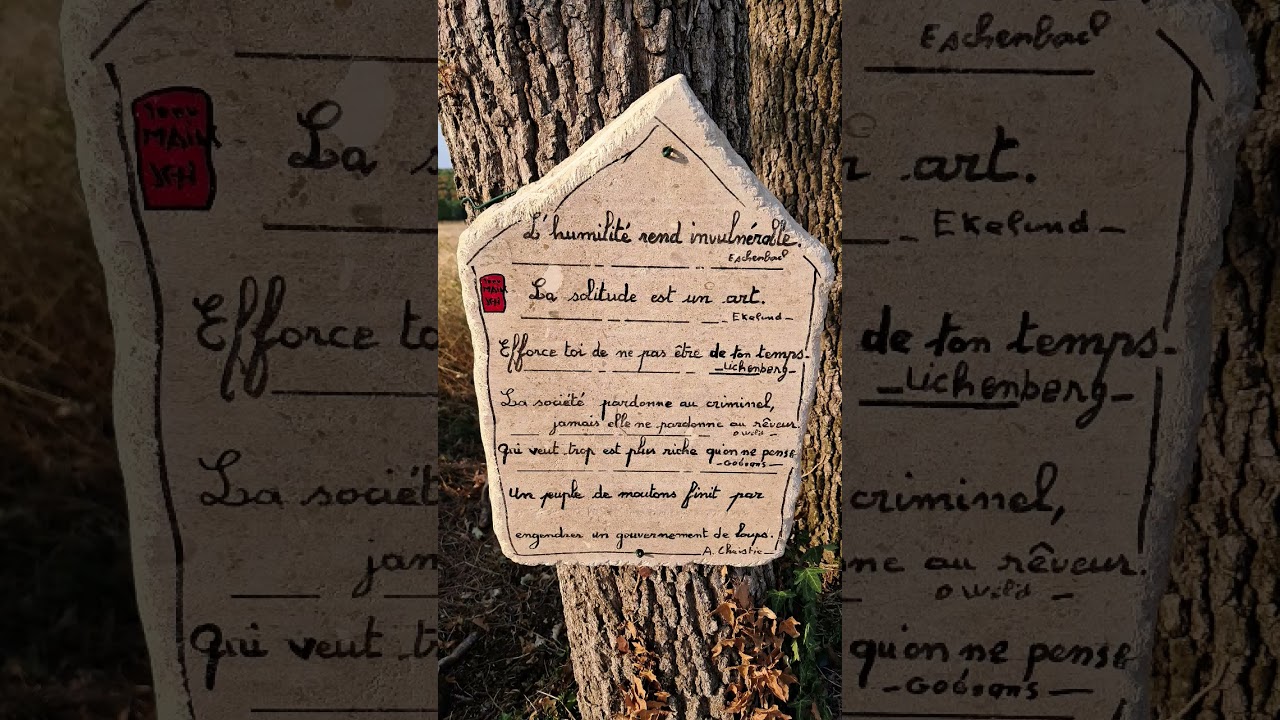 L'humilité rend invulnérable.
Eschenbach
La solitude est un art.
Ekelund
Efforce toi de ne pas être de ton temps.
Lichenberg
La société pardonne au criminel,
jamais elle ne pardonne au rêveur.
O Wild
Qui veut trop est plus riche qu'on ne pense
Un peuple de moutons finit par
engendrer un gouvernement de loups.
A. Christie
MAIN